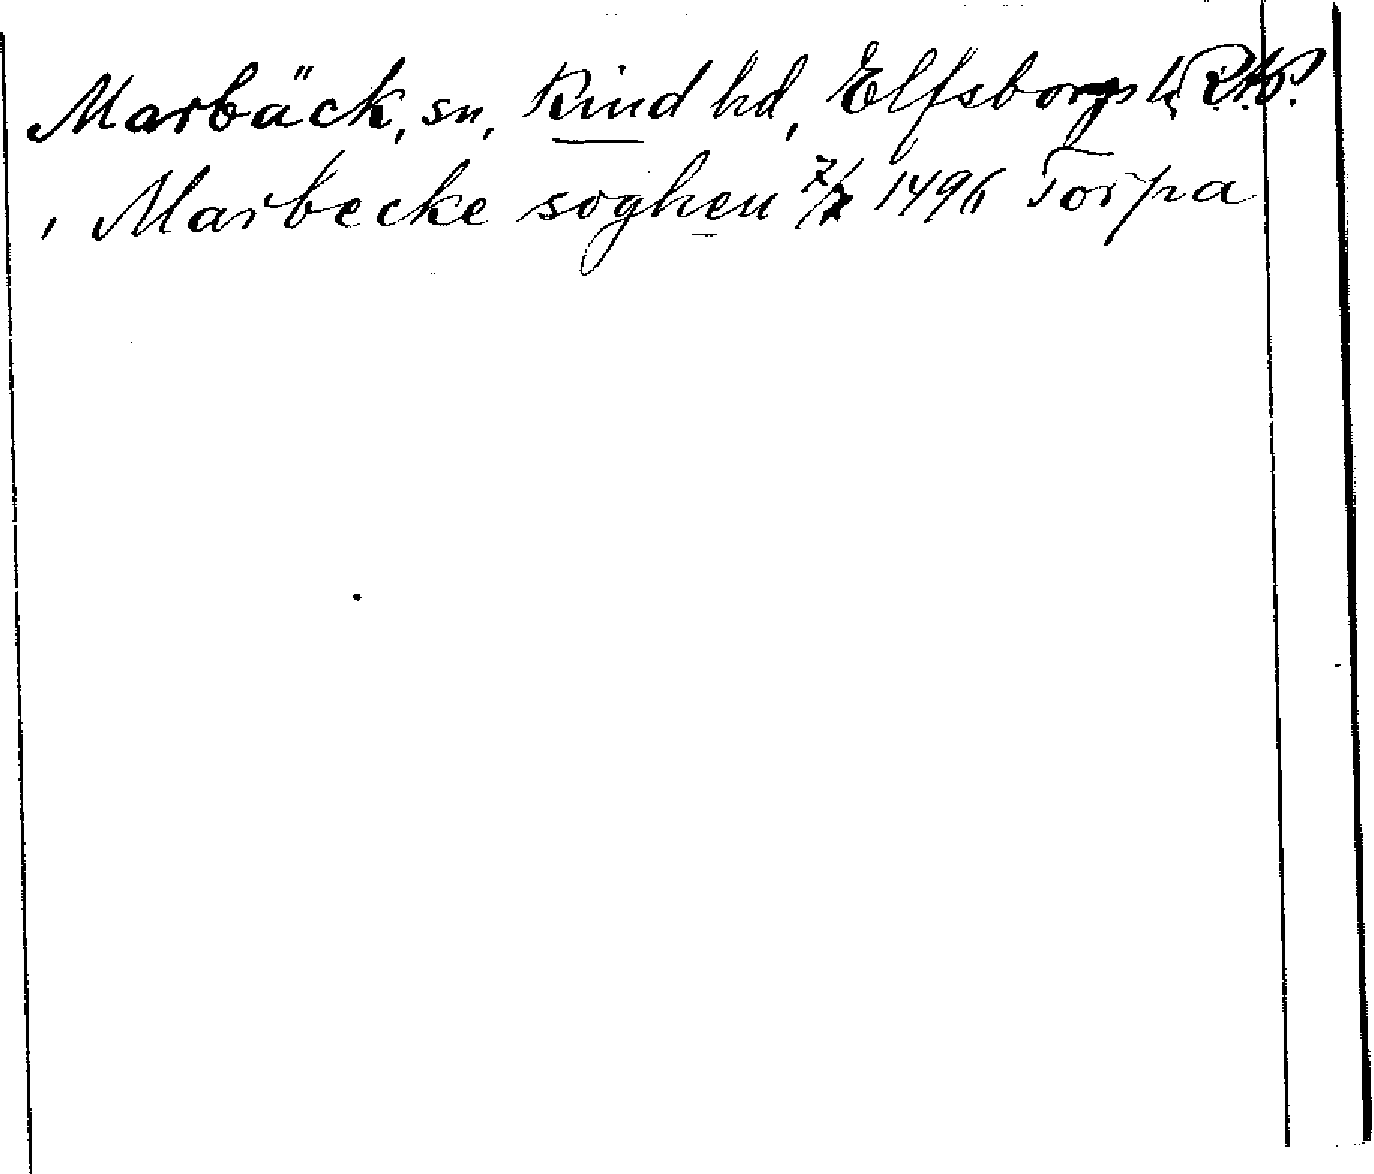 Marbäck, sn, Kind hd, Elfsborgs l. R.A.P.
, Marbecke soghen 7/2 1496 Torpa